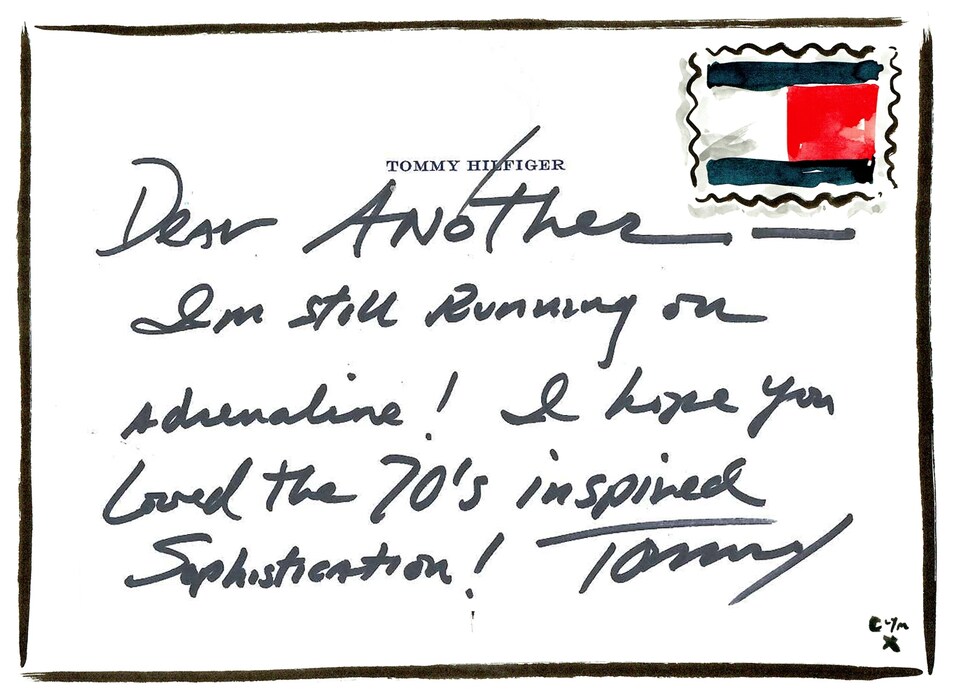 TOMMY HILFIGER
Dear Another —
I'm still Running on
adrenaline! I hope you
Loved the 70's inspired
Sophistication! Tommy